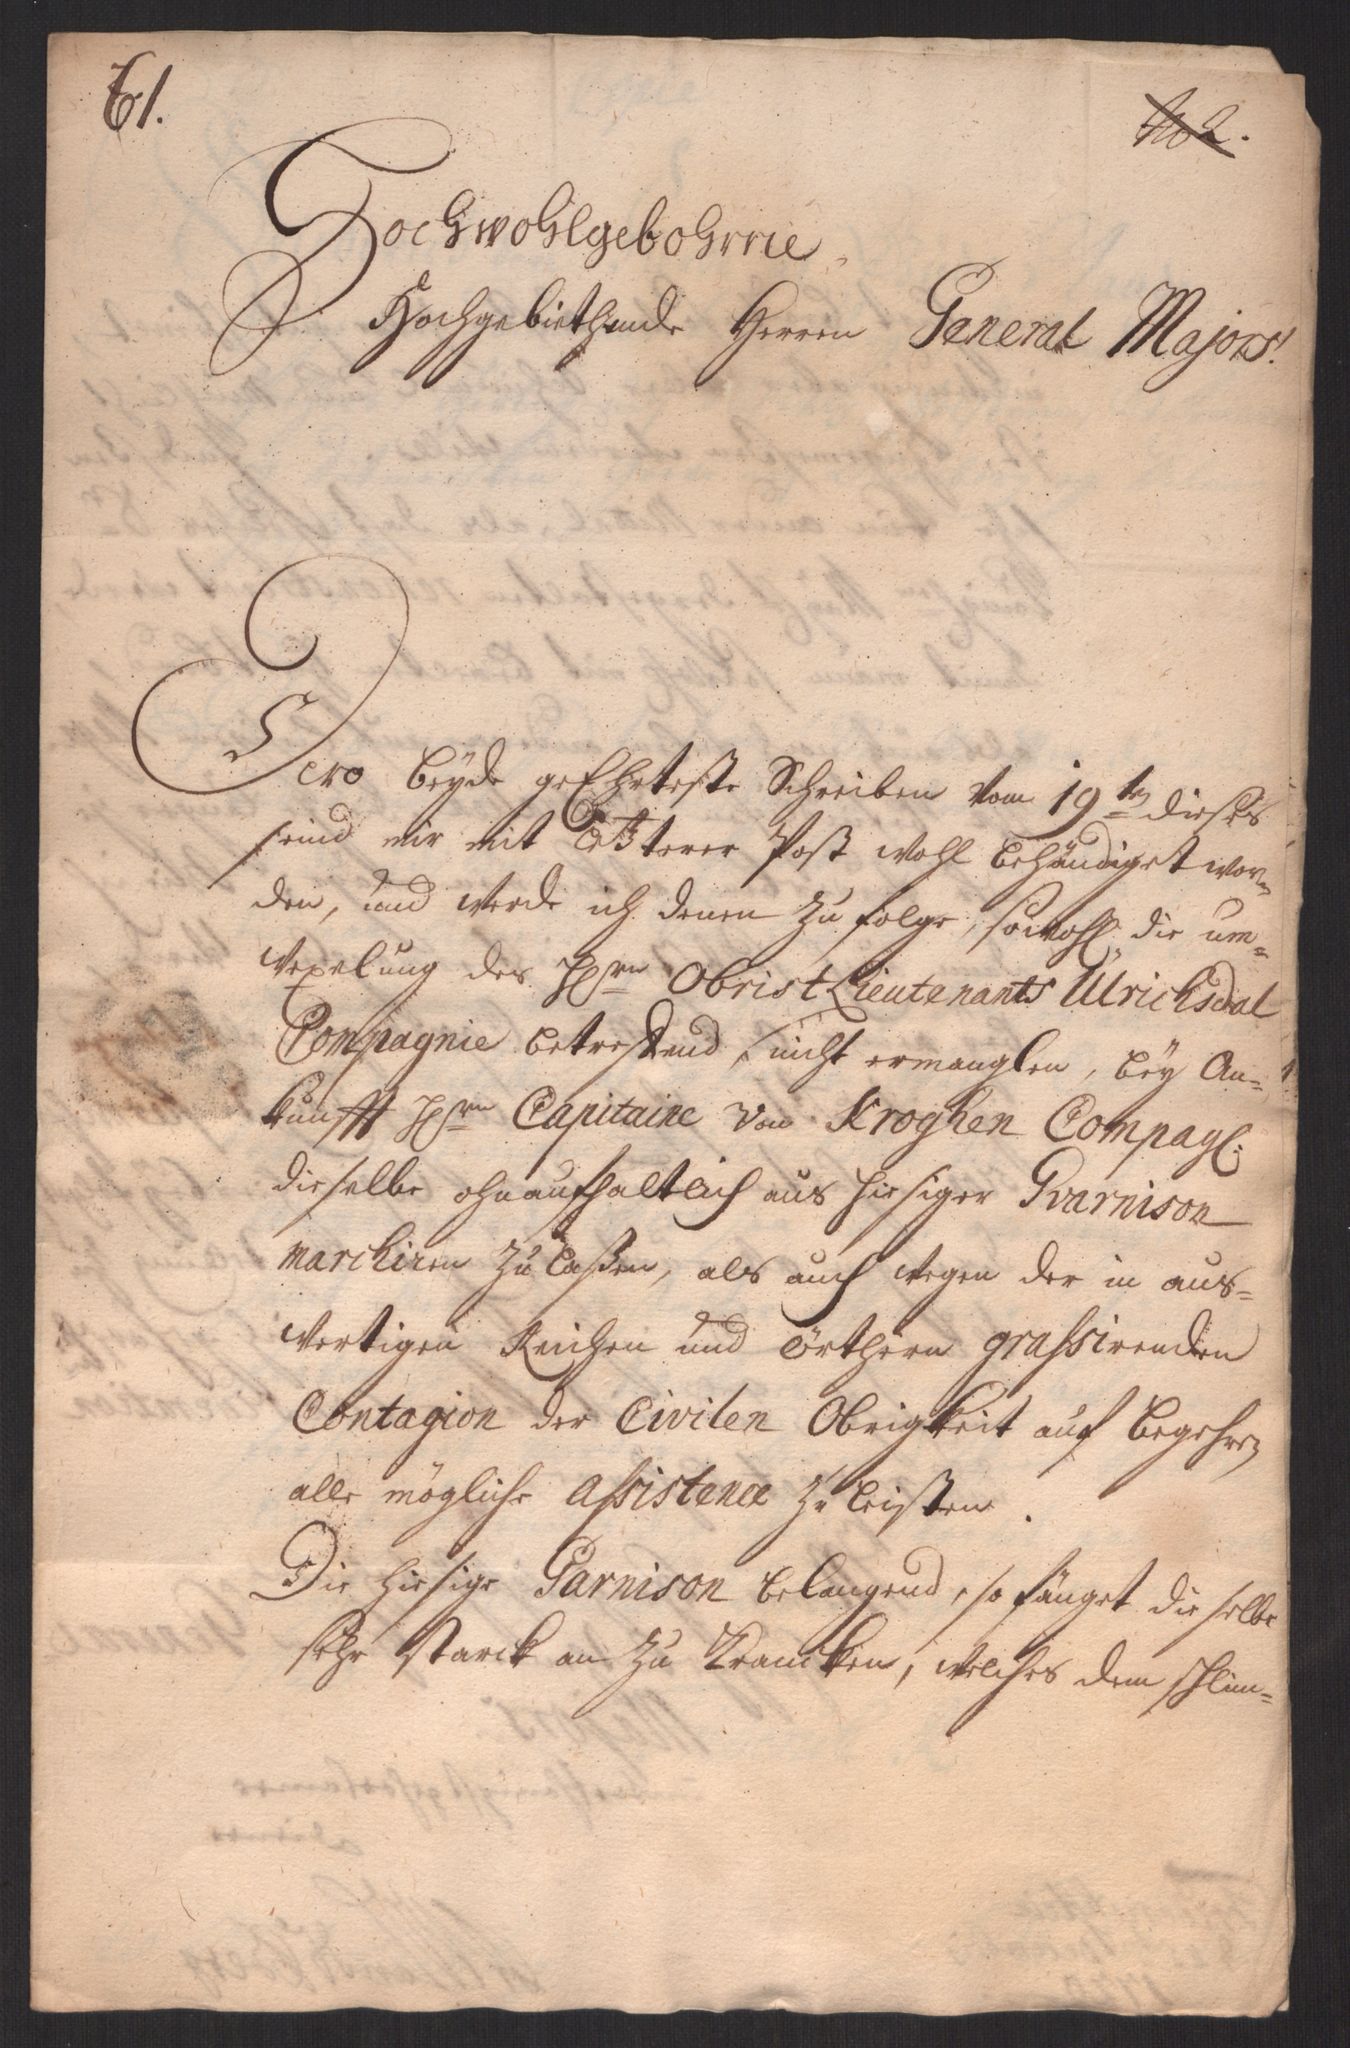 61.
Hochwohlgebohrne
Hochgebiethende Herren General Majors!
Dero beyde geEhrteste Schreiben vom 19ten dieses
seind mir mit Letzterer Post wohl behändiget wor-
den, und werde ich denen zu folge, sowohl die um-
wexelung des Hrn Obrist Lieutenants Ulrichsdal
Compagnie betreffend, nicht ermanglen, bey An-
kunfft Hrn Capitaine von Kroghen Compag:
dieselbe ohnaufhaltlich aus hiesiger Gvarnison
marchiren zu laßen, als auch wegen der in aus-
wertigen Reichen und Örthern grassirenden
Contagion der Civilen Obrigkeit auf begehren
alle mögliche assistence zu leisten.
Die hiesige Garnison belangend, so fänget dieselbe
sehr starck an zu Krancken, welches dem schlim-